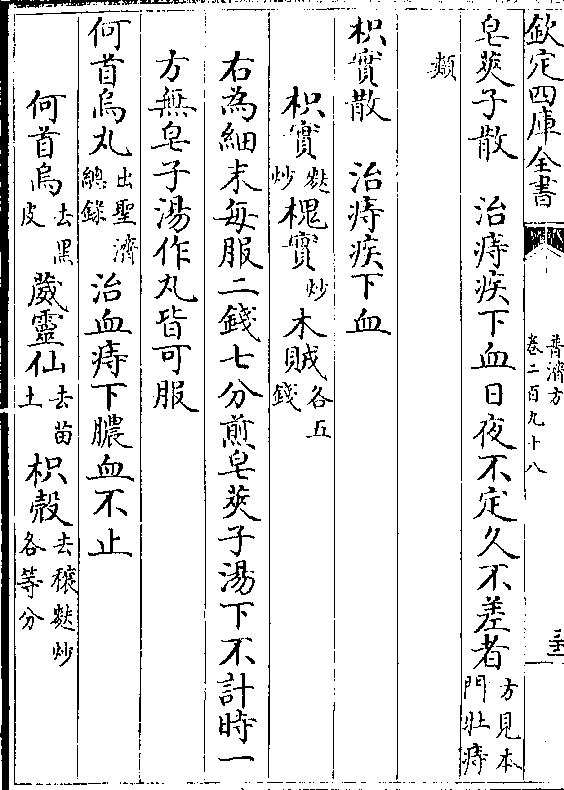 欽定四庫全書
普濟方
卷二百九十八
皂莢子散　治痔疾下血日夜不定久不差者方見本門壯痔
類
枳實散　治痔疾下血
枳實麩炒槐實炒木賊各五錢
右為細末每服二錢七分煎皂莢子湯下不計時一
方無皂子湯作丸皆可服
何首烏丸出聖濟總錄治血痔下膿血不止
何首烏去黑皮葳靈仙去苗土枳殼去穰麩炒各等分